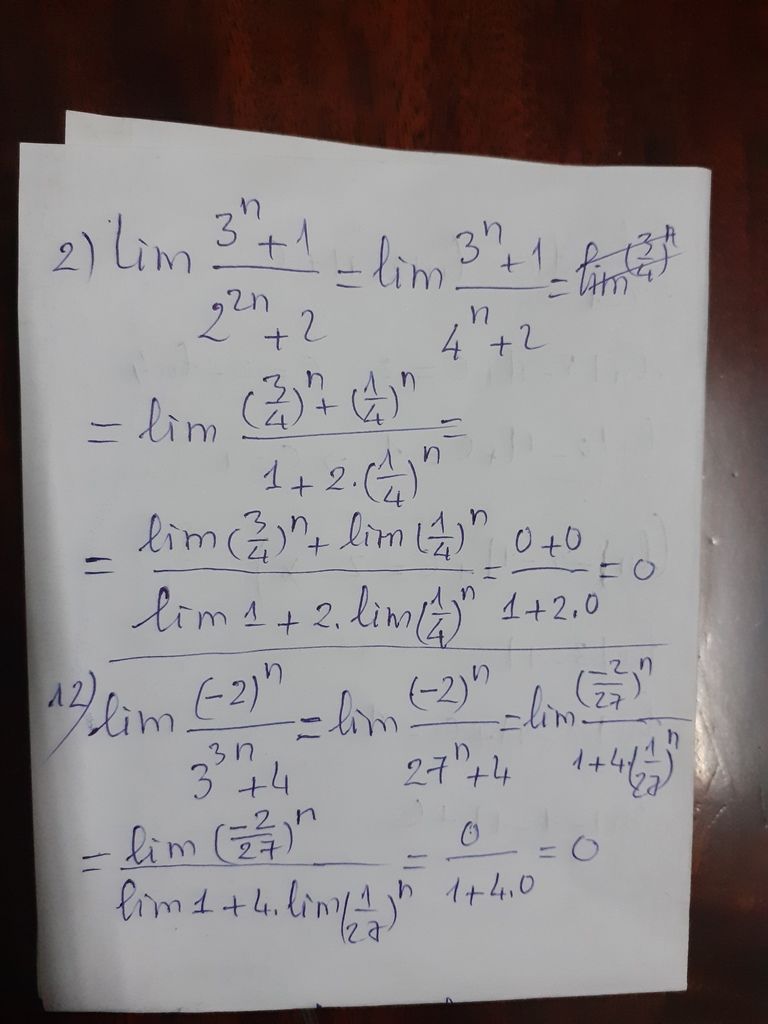 2) lim (3^n + 1)/(2^{2n} + 2) = lim (3^n + 1)/(4^n + 2) = lim (3/4)^n
= lim ((3/4)^n + (1/4)^n)/(1 + 2.(1/4)^n) =
= (lim (3/4)^n + lim (1/4)^n)/(lim 1 + 2. lim (1/4)^n) = (0 + 0)/(1 + 2.0) = 0
12) lim (-2)^n/(3^{3n} + 4) = lim (-2)^n/(27^n + 4) = lim (-2/27)^n/(1 + 4.(1/27)^n)
= lim (-2/27)^n/(lim 1 + 4. lim (1/27)^n) = 0/(1 + 4.0) = 0